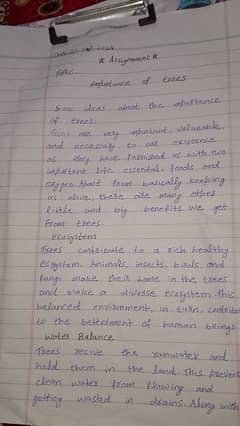 * Assignment *
Topic:
Importance of trees
Some ideas about the importance
of trees:
are very important, valueable
and necessary to our existence
as they have furnished us with two
important life essentials, foods and
oxygen. Apart from basically keeping
us alive, there are many other
little and big benefits we get
from trees.
Ecosystem
Trees contribute to a rich healthy
ecosystem. Animals, insects, birds, and
fungi make their home in the trees
and make a diverse ecosystem. This
balanced environment, in turn, contribut
to the betterment of human beings
Water Balance
Trees recive the rainwater and
hold them in the land. This prevent
clean water from flowing and
getting wasted in drains. Along with